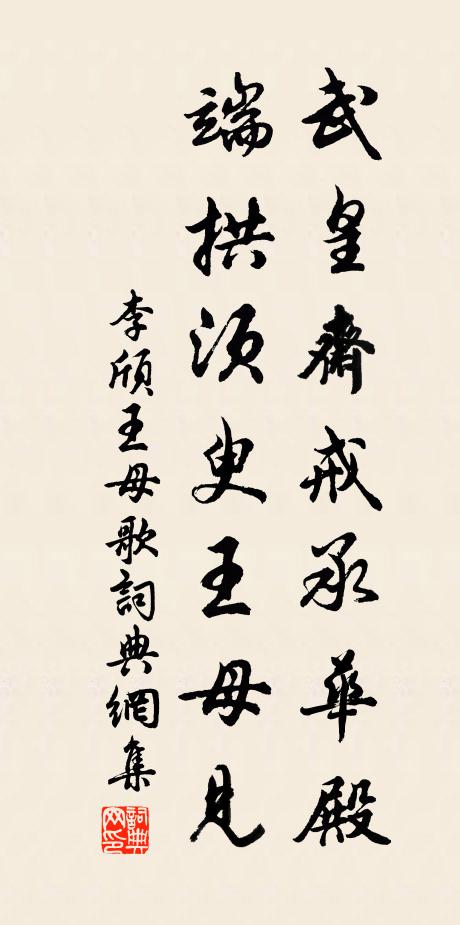 武皇齋戒承華殿
端拱須臾王母見
李頎王母歌詞典網集
詞典網印